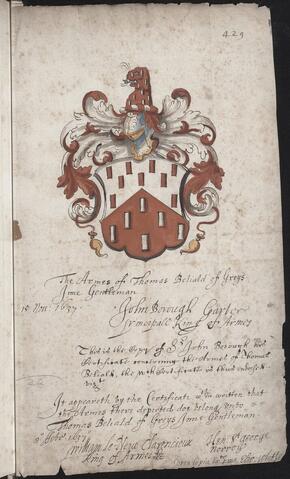 429
The Armes of Thomas Beliald of Greys
Inne Gentleman
10 1637. John Borough Garter
Principall King of Armes
This is the Copy of Sr John Borough his
Certificate concerning the Armes of Thomas
Beliald, the wch Certificate is thus
It appeareth by the Certificate written that
the Armes there depicted doe belong unto
Thomas Beliald of Greys Inne Gentleman
1637
William le Neve Clarenceux Hen: St George
King of Armes Norroy